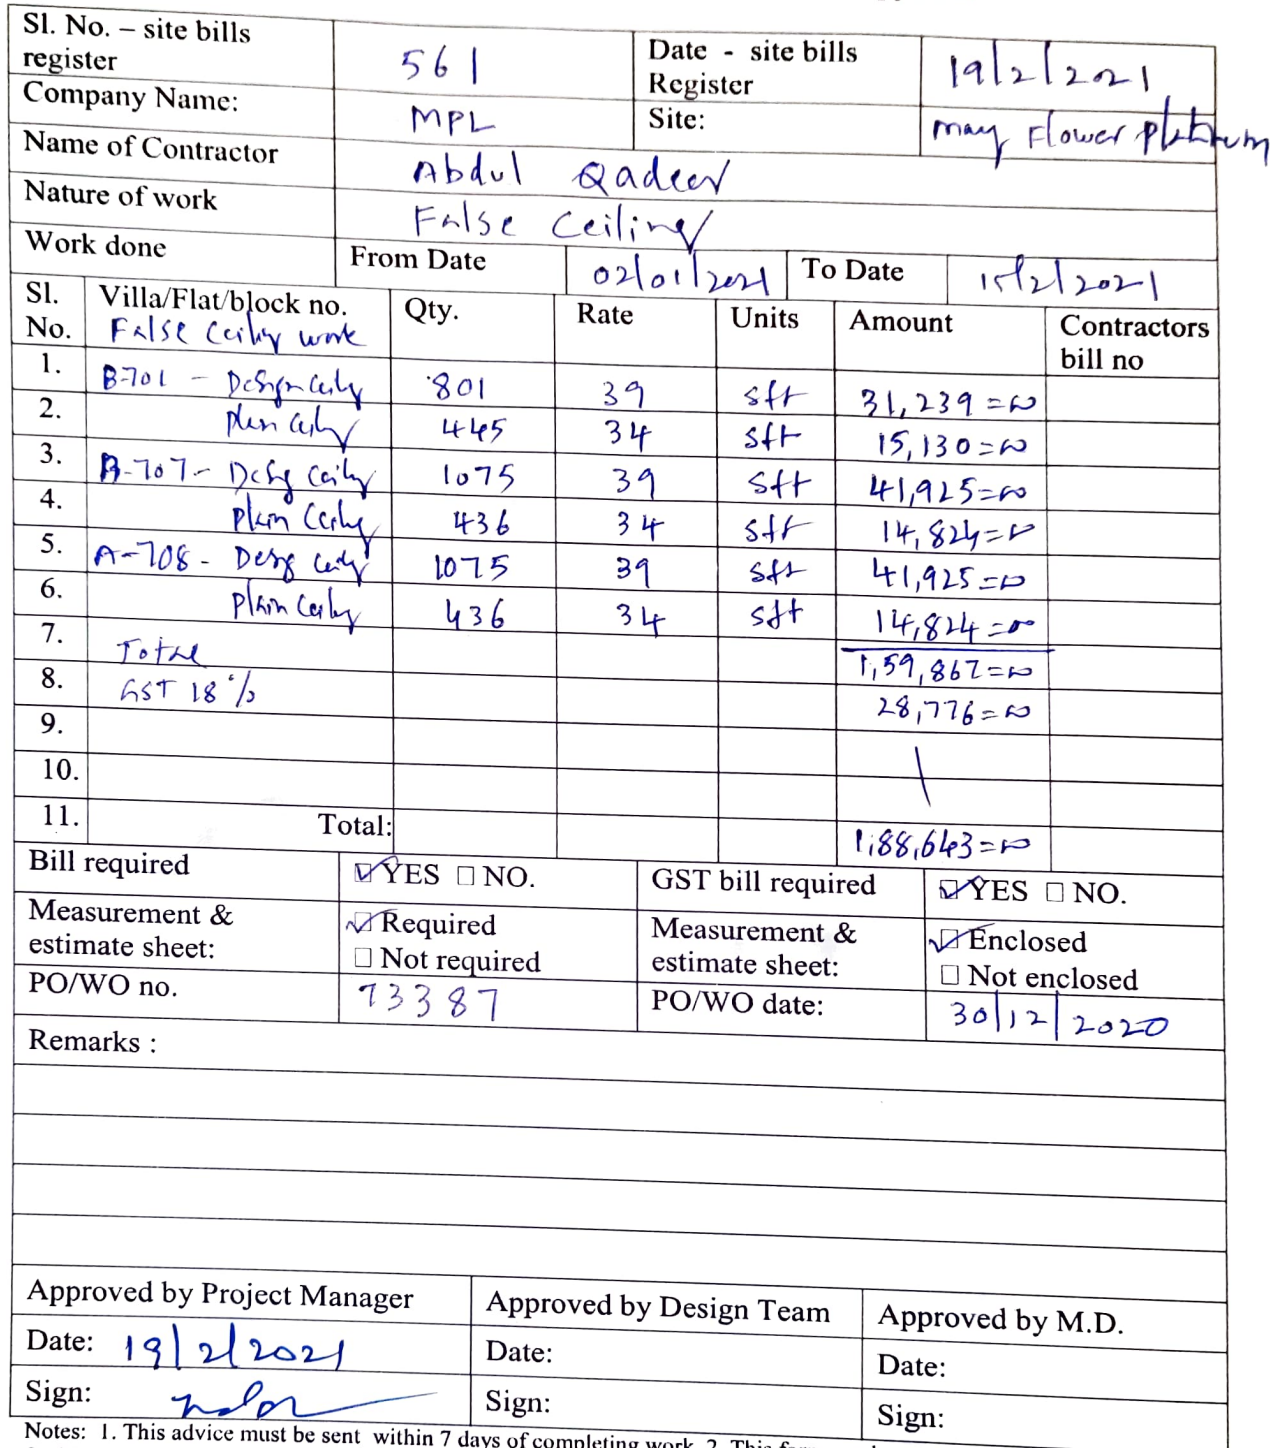 Sl. No. – site bills register 561 Date - site bills Register 19/2/2021
Company Name: MPL Site: may Flower platinum
Name of Contractor Abdul Qadeer
Nature of work False Ceiling
Work done From Date 02/01/2021 To Date 15/2/2021
Sl. No. Villa/Flat/block no. Qty. Rate Units Amount Contractors bill no
False Ceiling work
1. B-701 - Design Ceiling 801 39 sft 31,239=00
2. plain Ceiling 445 34 sft 15,130=00
3. B-707 - Desg Ceiling 1075 39 sft 41,925=00
4. plain Ceiling 436 34 sft 14,824=00
5. A-708 - Desg Ceiling 1075 39 sft 41,925=00
6. plain Ceiling 436 34 sft 14,824=00
7. Total 1,59,867=00
8. GST 18% 28,776=00
9.
10.
11. Total: 1,88,643=00
Bill required ☑YES ☐NO. GST bill required ☑YES ☐NO.
Measurement & estimate sheet: ☑Required Measurement & estimate sheet: ☑Enclosed
☐Not required ☐Not enclosed
PO/WO no. 73387 PO/WO date: 30/12/2020
Remarks :
Approved by Project Manager Approved by Design Team Approved by M.D.
Date: 19/2/2021 Date: Date:
Sign: Sign: Sign:
Notes: 1. This advice must be sent within 7 days of completing work. 2. This